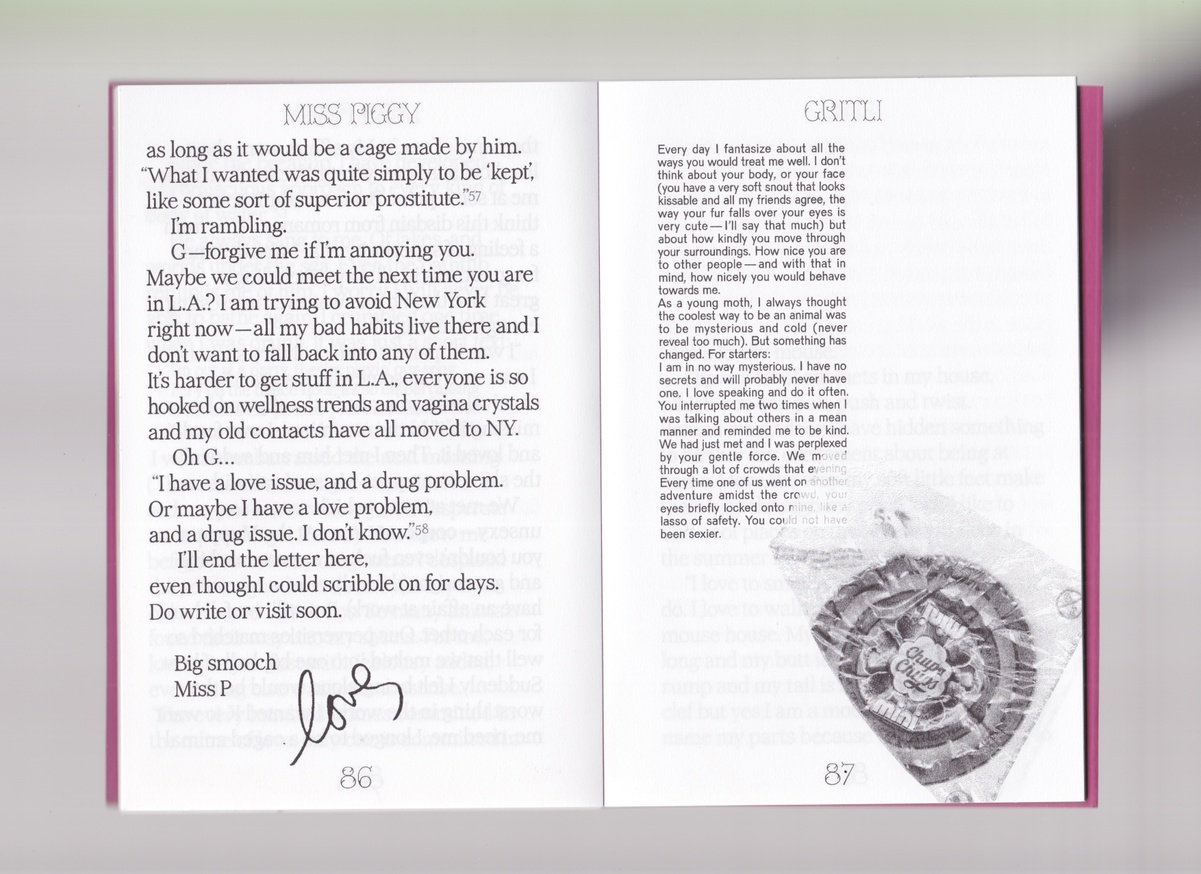 MISS PIGGY
as long as it would be a cage made by him.
“What I wanted was quite simply to be ‘kept’,
like some sort of superior prostitute.”57
I’m rambling.
G—forgive me if I’m annoying you.
Maybe we could meet the next time you are
in L.A.? I am trying to avoid New York
right now—all my bad habits live there and I
don’t want to fall back into any of them.
It’s harder to get stuff in L.A., everyone is so
hooked on wellness trends and vagina crystals
and my old contacts have all moved to NY.
Oh G…
“I have a love issue, and a drug problem.
Or maybe I have a love problem,
and a drug issue. I don’t know.”58
I’ll end the letter here,
even thoughI could scribble on for days.
Do write or visit soon.
Big smooch
Miss P
love
86
GRITLI
Every day I fantasize about all the
ways you would treat me well. I don’t
think about your body, or your face
(you have a very soft snout that looks
kissable and all my friends agree, the
way your fur falls over your eyes is
very cute — I’ll say that much) but
about how kindly you move through
your surroundings. How nice you are
to other people — and with that in
mind, how nicely you would behave
towards me.
As a young moth, I always thought
the coolest way to be an animal was
to be mysterious and cold (never
reveal too much). But something has
changed. For starters:
I am in no way mysterious. I have no
secrets and will probably never have
one. I love speaking and do it often.
You interrupted me two times when I
was talking about others in a mean
manner and reminded me to be kind.
We had just met and I was perplexed
by your gentle force. We moved
through a lot of crowds that evening
Every time one of us went on another
adventure amidst the crowd, your
eyes briefly locked onto mine, like a
lasso of safety. You could not have
been sexier.
Chupa
Chups
mini
87